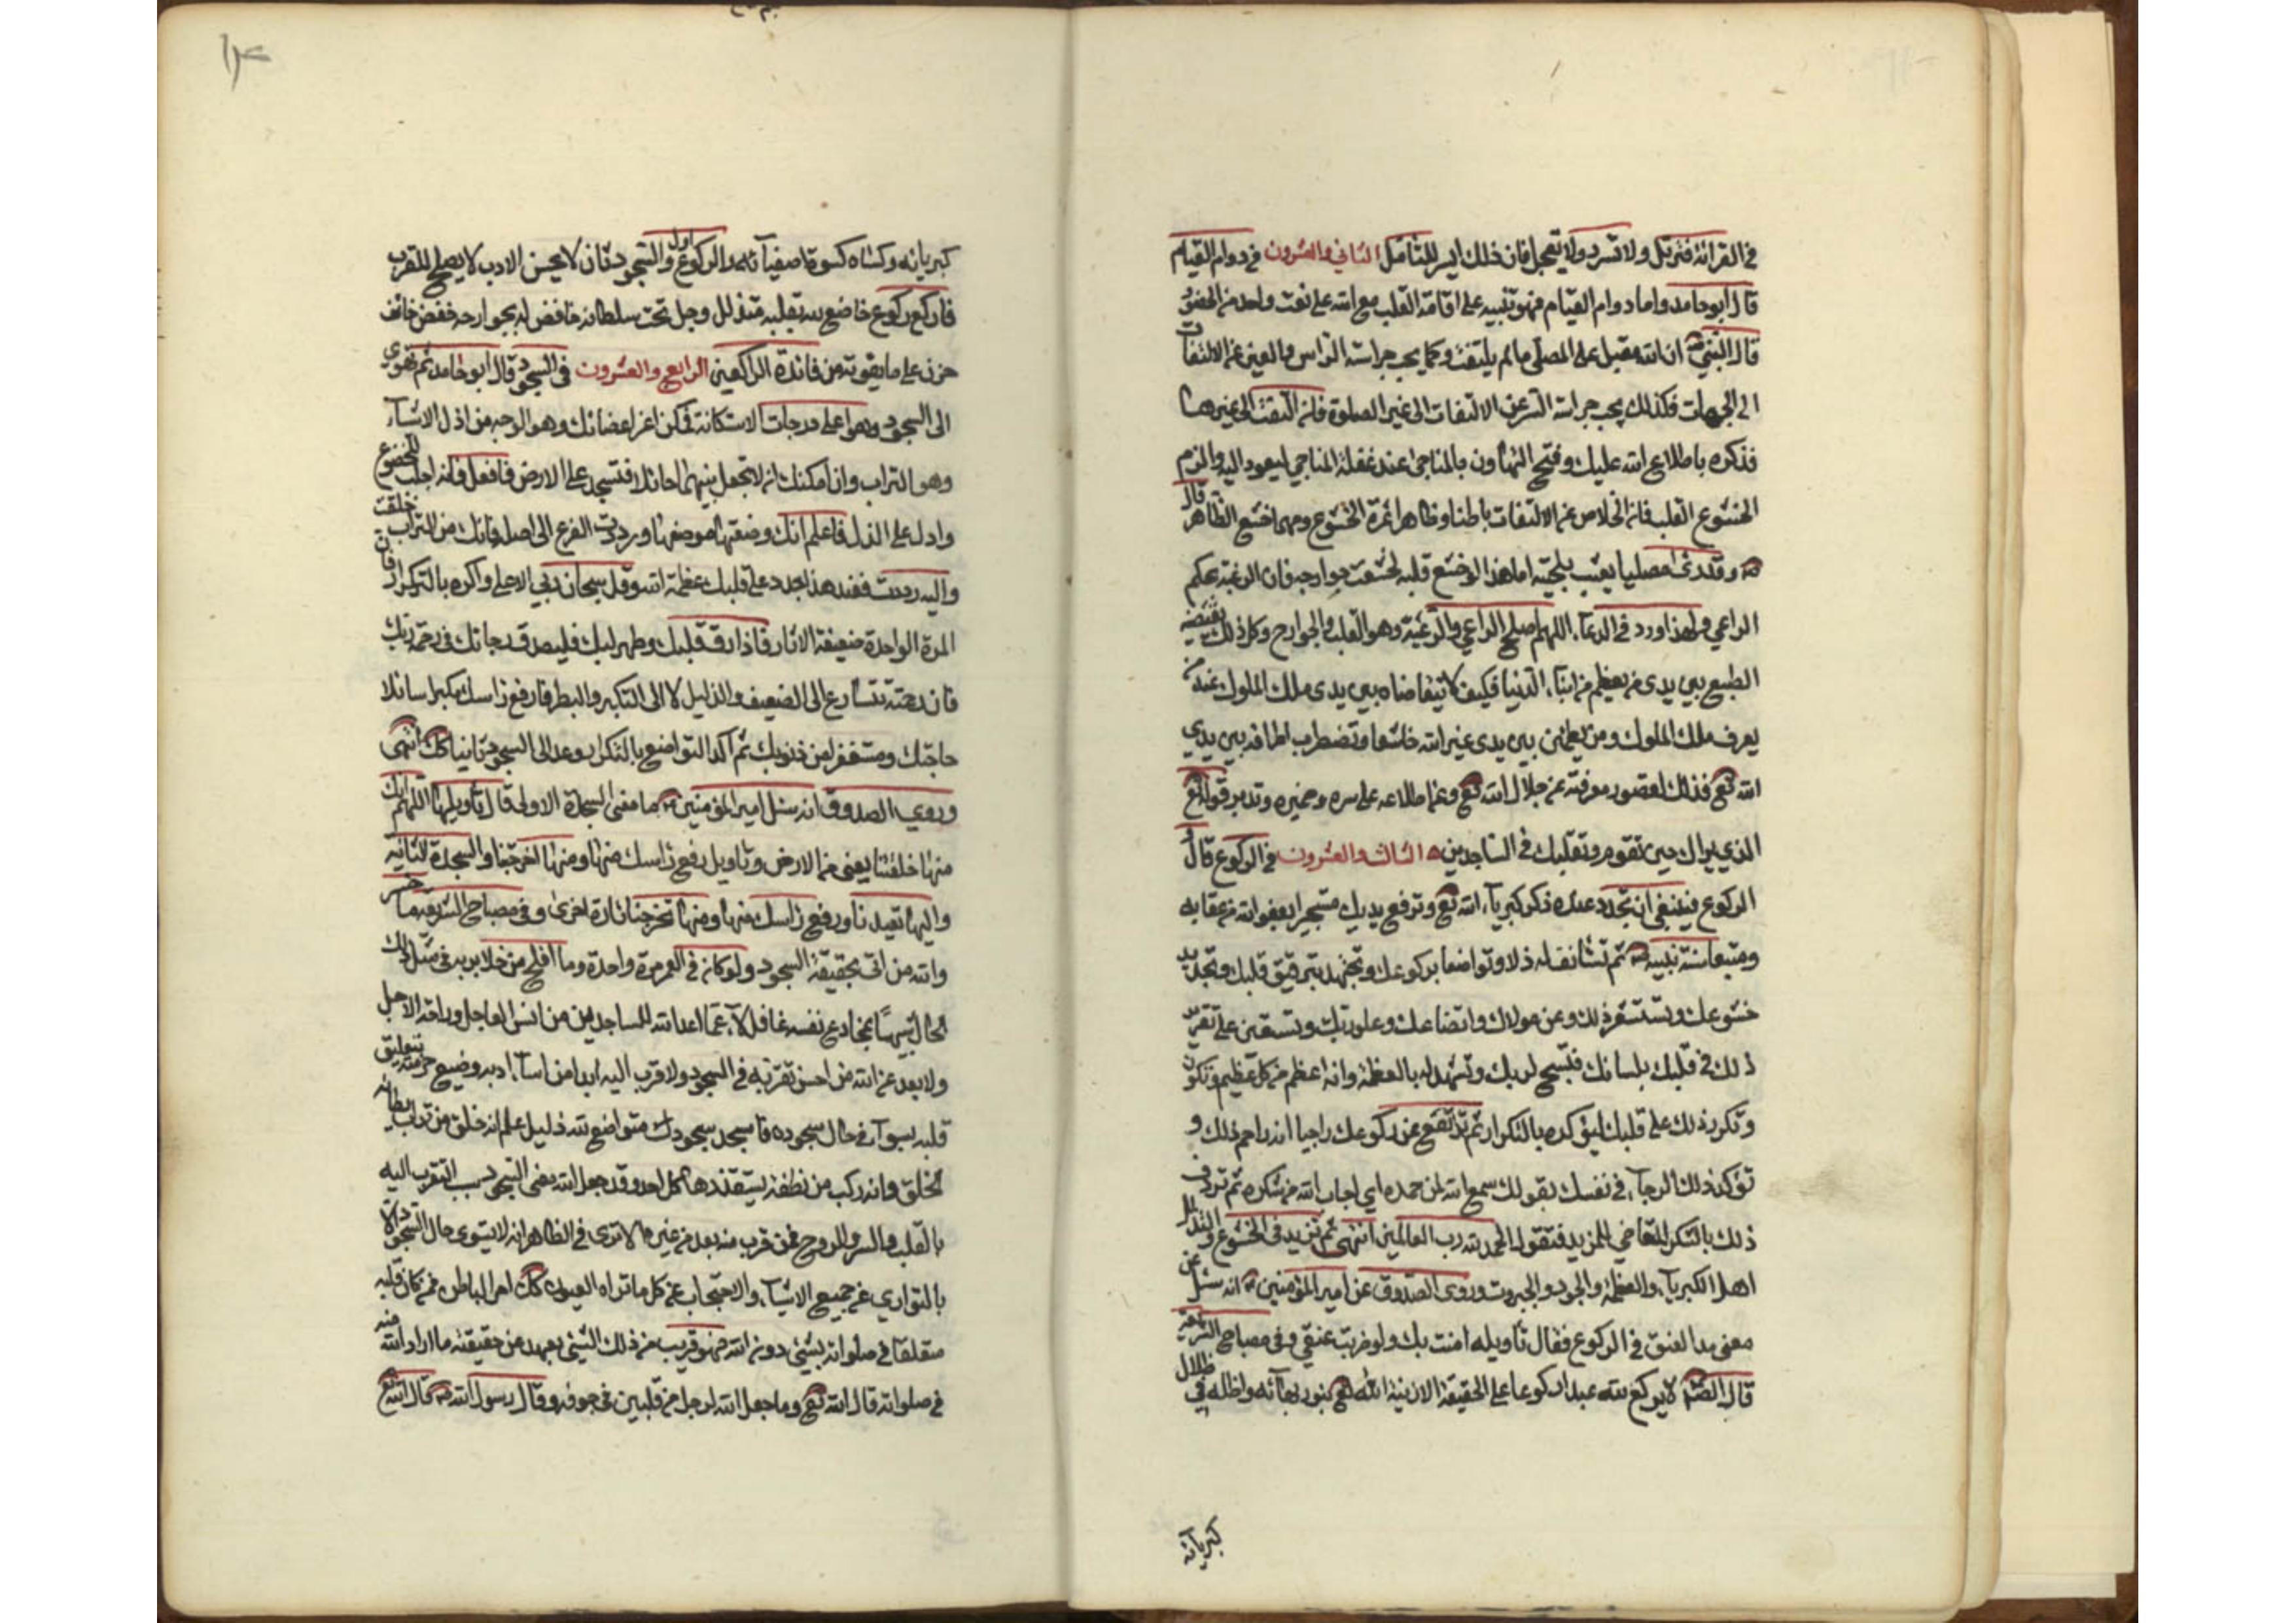 في القرائة فترتل ولا تسرد ولا تعجل فان ذلك ايسر للتامل الثاني والعشرون في دوام القيام
قال ابو حامد واما دوام القيام فهو تنبيه على اقامة القلب مع الله على نعت واحد من الحضور
قال النبي ص ان الله مقبل على المصلي ما لم يلتفت وكما يجب حراسة الراس والعين عن الالتفات
الى الجهات فكذلك يجب حراسة السر عن الالتفات الى غير الصلوة فان التفت الى غيرها
فذكره باطلاع الله عليك وقبح التهاون بالمناجى عند غفلة المناجي ليعود اليه والزم
الخشوع القلب فان الخلاص عن الالتفات باطنا وظاهرا ثمرة الخشوع ومهما خشع الظاهر قال
ص وقد رئ مصليا يعبث بلحيته اما هذا لو خشع قلبه لخشعت جوارحه فان الرعية بحكم
الراعي ولهذا ورد في الدعاء اللهم اصلح الراعي والرعية وهو القلب والجوارح وكل ذلك يقتضيه
الطبع بين يدي من يعظم من ابناء الدنيا فكيف لا يتقاضاه بين يدي ملك الملوك عند من
يعرف ملك الملوك ومن يطمئن بين يدي غير الله خاشعا وتضطرب اطرافه بين يدي
الله تع فذلك لقصور معرفته عن جلال الله تع وعن اطلاعه على سره وضميره وتدبر قوله تع
الذي يراك حين تقوم وتقلبك في الساجدين ه الثالث والعشرون في الركوع قال و
الركوع فينبغي ان تجدد عنده ذكر كبرياء الله تع وترفع يديك مستجيرا بعفو الله من عقابه
ومتبعا سنة نبيه ص ثم تستانف له ذلا وتواضعا بركوعك وتجتهد بترقيق قلبك وتجديد
خشوعك وتستشعر ذلك وعز مولاك واتضاعك وعلو ربك وتستعين على تقرير
ذلك في قلبك بلسانك فتسبح لربك وتشهد له بالعظمة وانه اعظم من كل عظيم وتكون
وتكرر ذلك على قلبك ليؤكده بالتكرار ثم ترتفع عن ركوعك راجيا انه راحم ذلك و
تؤكد ذلك الرجاء في نفسك بقولك سمع الله لمن حمده اي اجاب الله من شكره ثم تردف
ذلك بالشكر المتقاضي للمزيد فتقول الحمد لله رب العالمين انتهى ثم تزيد في الخشوع والتذلل
اهل الكبرياء والعظمة والجود والجبروت وروى الصدوق عن امير المؤمنين ع انه سئل عن
معنى مد العنق في الركوع فقال تاويله امنت بك ولو ضربت عنقي وفي مصباح الشريعة
قال الصم لا يركع لله عبد ركوعا على الحقيقة الا زينه الله تع بنور بهائه واظله في ظلال
كبريائه
كبريائه وكساه كسوة اصفيائه والركوع اول والسجود ثان لا يحسن الادب لا يصلح للقرب
فاركع ركوع خاضع لله بقلبه متذلل وجل تحت سلطانه خافض له بجوارحه خفض خائف
حزن على ما يفوته من فائدة الراكعين الرابع والعشرون في السجود قال ابو حامد ثم تهوي
الى السجود وهو اعلى درجات الاستكانة فمكن اعز اعضائك وهو الوجه من اذل الاشياء
وهو التراب وان امكنك ان لا تجعل بينهما حائلا فتسجد على الارض فافعل فانه اجلب للخضوع
وادل على الذل فاعلم انك وضعتها موضعها ورددت الفرع الى اصله فانك من التراب خلقت
واليه رددت فعند هذا جدد على قلبك عظمة الله وقل سبحان ربي الاعلى واكره بالتكرار فان
المرة الواحدة ضعيفة الاثار فاذا رق قلبك وطهر لبك فليصدق رجائك في رحمة ربك
فان رحمته تتسارع الى الضعيف والذليل لا الى التكبر والبطر فارفع راسك مكبرا سائلا
حاجتك ومستغفرا من ذنوبك ثم اكد التواضع بالتكرار وعد الى السجود ثانيا كك انتهى
وروى الصدوق انه سئل امير المؤمنين ع ما معنى السجدة الاولى قال تاويلها اللهم انك
منها خلقتنا يعني من الارض وتاويل رفع راسك منها ومنها اخرجتنا والسجدة الثانية
واليها تعيدنا ورفع راسك منها ومنها تخرجنا تارة اخرى وفي مصباح الشريعة ما خسر
والله من اتى بحقيقة السجود ولو كان في العمر مرة واحدة وما افلح من خلا بربه في مثل ذلك
الحال شبيها بمخادع نفسه غافل لاه عما اعد الله للساجدين من انس العاجل وراحة الاجل
ولا بعد عن الله من احسن تقربه في السجود ولا قرب اليه ابدا من اساء ادبه وضيع حرمته بتعليق
قلبه بسواه في حال سجوده فاسجد سجودك متواضع لله ذليل علم انه خلق من تراب يطاه
الخلق وانه ركب من نطفة يستقذرها كل احد وقد جعل الله معنى السجود سبب التقرب اليه
بالقلب والسر والروح فمن قرب منه بعد من غيره الا ترى في الظاهر انه لا يستوي حال السجود الا
بالتواري عن جميع الاشياء والاحتجاب عن كل ما تراه العيون كك امر الباطن فمن كان قلبه
متعلقا في صلواته بشئ دون الله فهو قريب من ذلك الشئ بعيد عن حقيقة ما اراد الله منه
في صلواته قال الله تع وما جعل الله لرجل من قلبين في جوفه وقال رسول الله ص قال الله تع